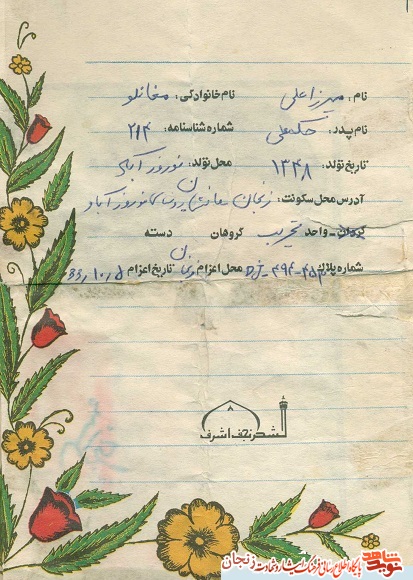 نام: میرزاعلی نام خانوادگی: مغانلو
نام پدر: حکمعلی شماره شناسنامه: ۲۱۴
تاریخ تولد: ۱۳۴۸ محل تولد: نوروز آباد
آدرس محل سکونت: زنجان روستای نوروز آباد
گردان - واحد تخریب گروهان دسته
شماره پلاک محل اعزام تاریخ اعزام
لشکر نجف اشرف
نوید شاهد
پایگاه اطلاع رسانی فرهنگ ایثار و شهادت زنجان